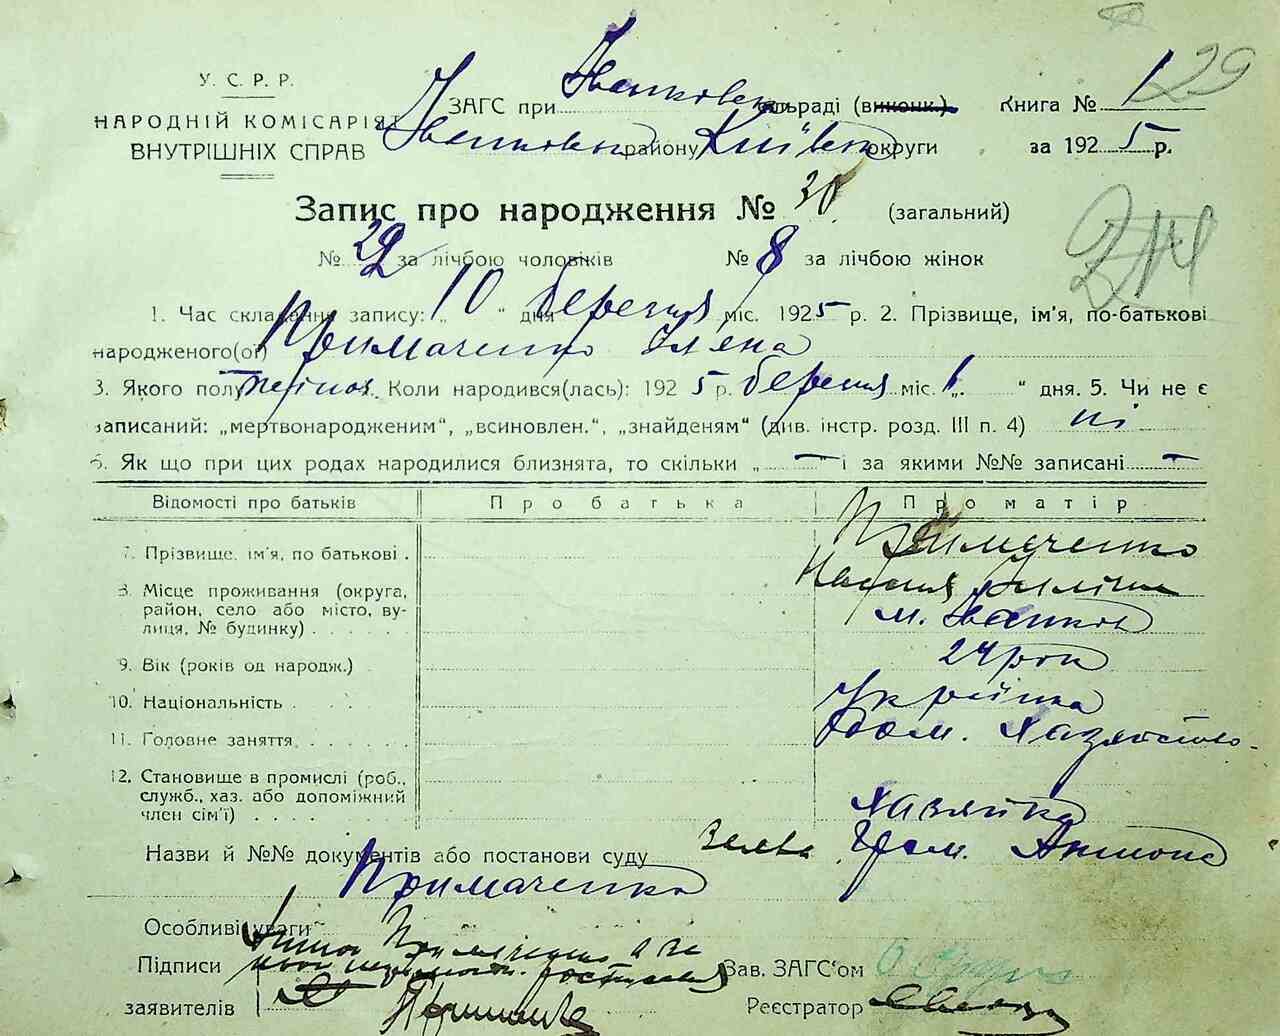 У. С. Р. Р.
НАРОДНІЙ КОМІСАРІЯТ
ВНУТРІШНІХ СПРАВ
ЗАГС при Іванковск. сільраді (виконк.) Книга № 1 29
Іванковськ району Київськ округи за 1925 р.
Запис про народження № 30 (загальний)
№ 22 за лічбою чоловіків № 8 за лічбою жінок
1. Час складення запису: „ 10 “ дня березня міс. 1925 р. 2. Прізвище, ім'я, по-батькові
народженого(ої) Примаченко Олена
3. Якого полу жіноч. Коли народився(лась): 1925 р. березня міс. „ 1 “ дня. 5. Чи не є
записаний: „мертвонародженим“, „всиновлен.“, „знайденям“ (див. інстр. розд. III п. 4) ні
6. Як що при цих родах народилися близнята, то скільки „ — “ і за якими №№ записані —
Відомості про батьків Про батька Про матір
7. Прізвище, ім'я, по батькові . Примаченко
8. Місце проживання (округа,
район, село або місто, вулиця, № будинку) м. Іванков
9. Вік (років од народж.) 24 рок
10. Національність . Українка
11. Головне заняття Дом. Хазяйство
12. Становище в промислі (роб.,
служб., хаз. або допоміжний
член сім'ї) Хазяйка
Назви й №№ документів або постанови суду Заява Гром. Антона
Примаченка
Особливі уваги
Антон Примаченко а за
Підписи Зав. ЗАГС'ом
заявителів Реєстратор